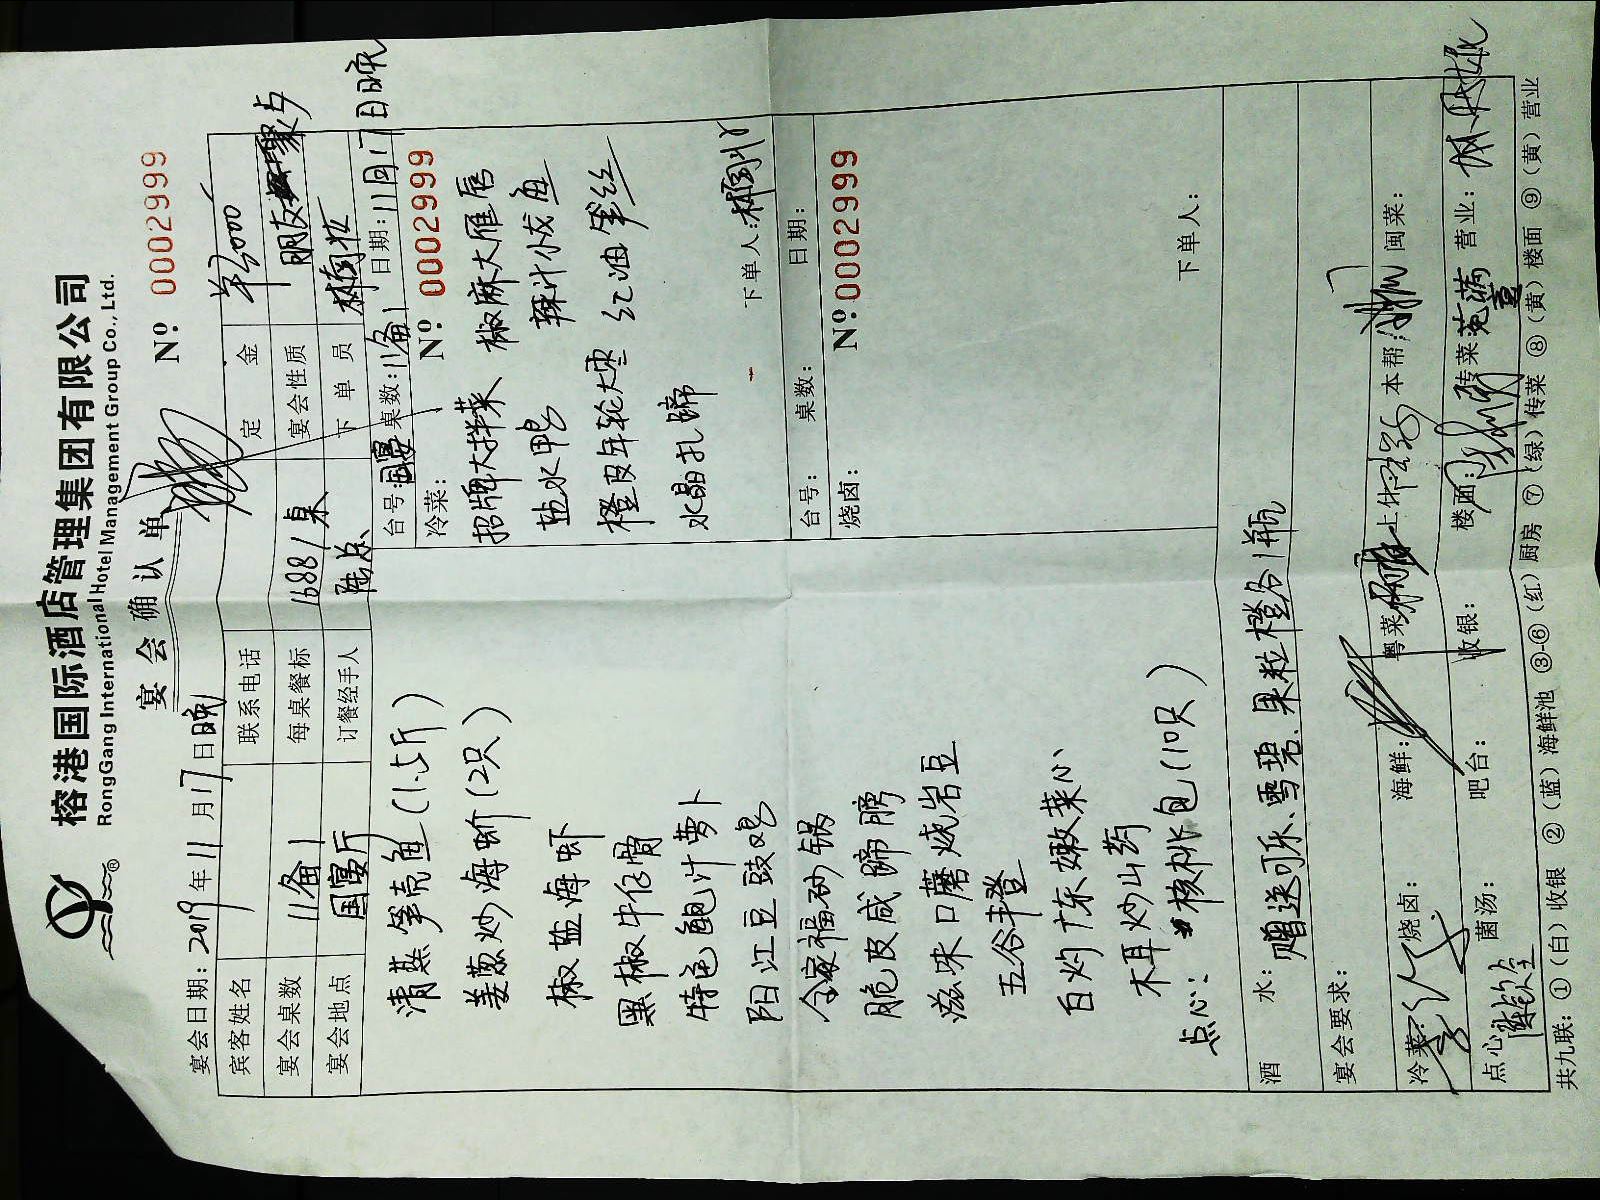 榕港国际酒店管理集团有限公司
RongGang International Hotel Management Group Co., Ltd.
宴会确认单
Nº 0002999
宴会日期：2019年11月17日晚
宾客姓名 联系电话 定金
宴会桌数 11备1 每桌餐标 1688/桌 宴会性质 朋友聚
宴会地点 国宴厅 订餐经手人 下单员
清蒸笋壳鱼（1.5斤）
姜葱炒海蚧（2只）
椒盐海虾
黑椒牛仔骨
特色鲍汁萝卜
阳江豆豉
全家福砂锅
脆皮咸蹄膀
滋味口蘑烧岩豆
五谷丰登
白灼广东嫩菜心
木耳炒山药
点心：核桃包（10只）
台号：国宴 桌数：11备1 日期：11月17日晚
冷菜： Nº 0002999
招牌大拌菜 椒麻大雁唇
盐水鸭 辣汁小成鱼
橙皮年轮大枣 红油笋丝
水晶扎蹄
下单人：
台号： 桌数： 日期：
烧卤： Nº 0002999
下单人：
酒水： 赠送可乐、雪碧、果粒橙各1瓶
宴会要求：
冷菜： 烧卤： 海鲜： 粤菜： 上什： 本帮： 闽菜：
点心： 菌汤： 吧台： 收银： 楼面： 传菜： 营业：
共九联：①（白）收银 ②（蓝）海鲜池 ③-⑥（红）厨房 ⑦（绿）传菜 ⑧（黄）楼面 ⑨（黄）营业